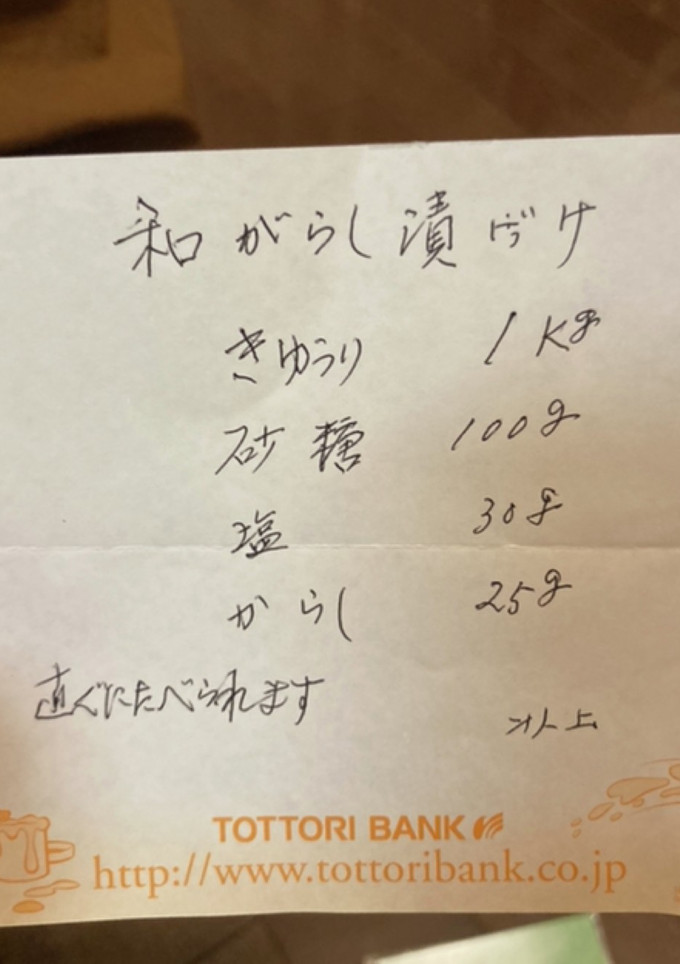 和がらし漬づけ
きゆうり 1Kg
砂糖 100g
塩 30g
からし 25g
直ぐにたべられます
以上
TOTTORI BANK
http://www.tottoribank.co.jp